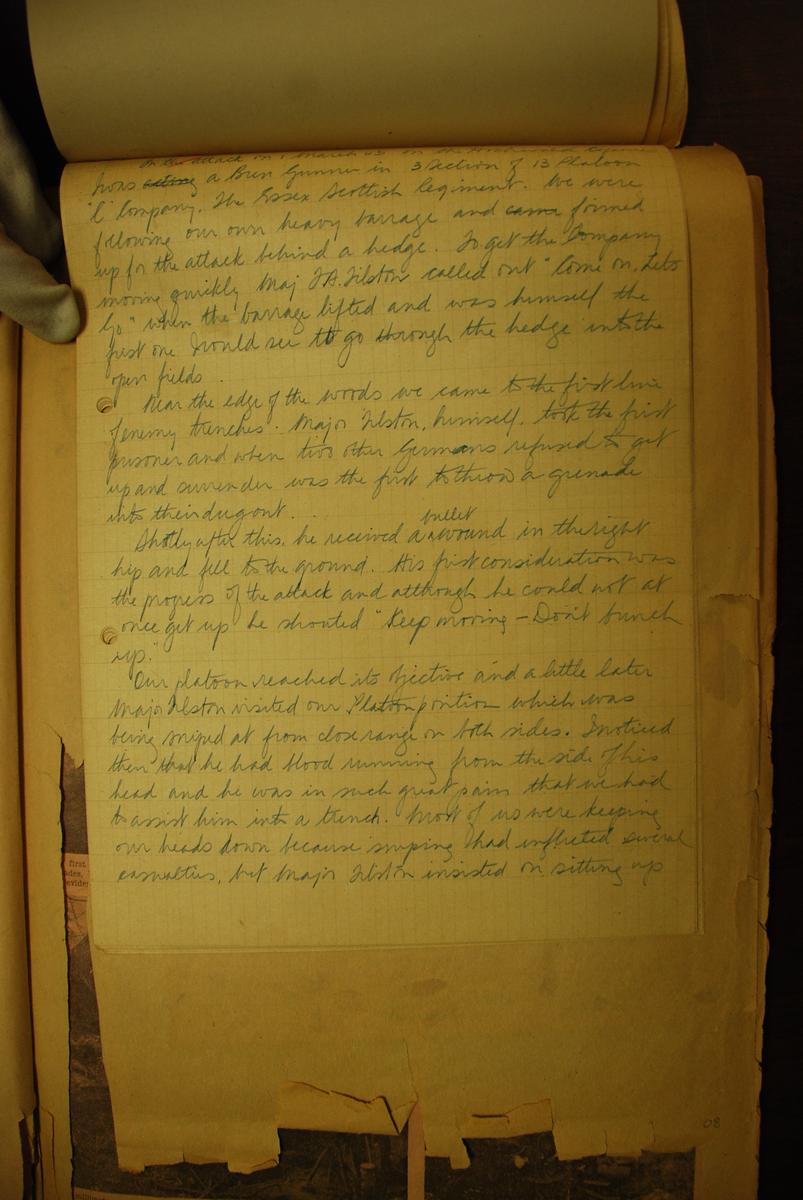 On the attack on 1 March 45 on the Hochwald
I was acting a Bren Gunner in 3 Section of 13 Platoon
"C" Company. The Essex Scottish Regiment. We were
following our own heavy barrage and came formed
up for the attack behind a hedge. To get the Company
moving quickly Maj F.A. Tilston called out "Come on, Lets
Go" when the barrage lifted and was himself the
first one I could see to go through the hedge into the
open fields.
Near the edge of the woods we came to the first line
of enemy trenches. Major Tilston, himself, took the first
prisoner and when two other Germans refused to get
up and surrender was the first to throw a grenade
into their dugout.
bullet
Shotly after this, he received a wound in the right
hip and fell to the ground. His first consideration was
the progress of the attack and although he could not at
once get up he shouted "Keep moving – Don't bunch
up."
Our platoon reached its objective and a little later
Major Tilston visited our Platoon position which was
being sniped at from close range on both sides. I noticed
then that he had blood running from the side of his
head and he was in such great pain that we had
to assist him into a trench. Most of us were keeping
our heads down because sniping had inflicted several
casualties, but Major Tilston insisted on sitting up
first
ades,
evider
08